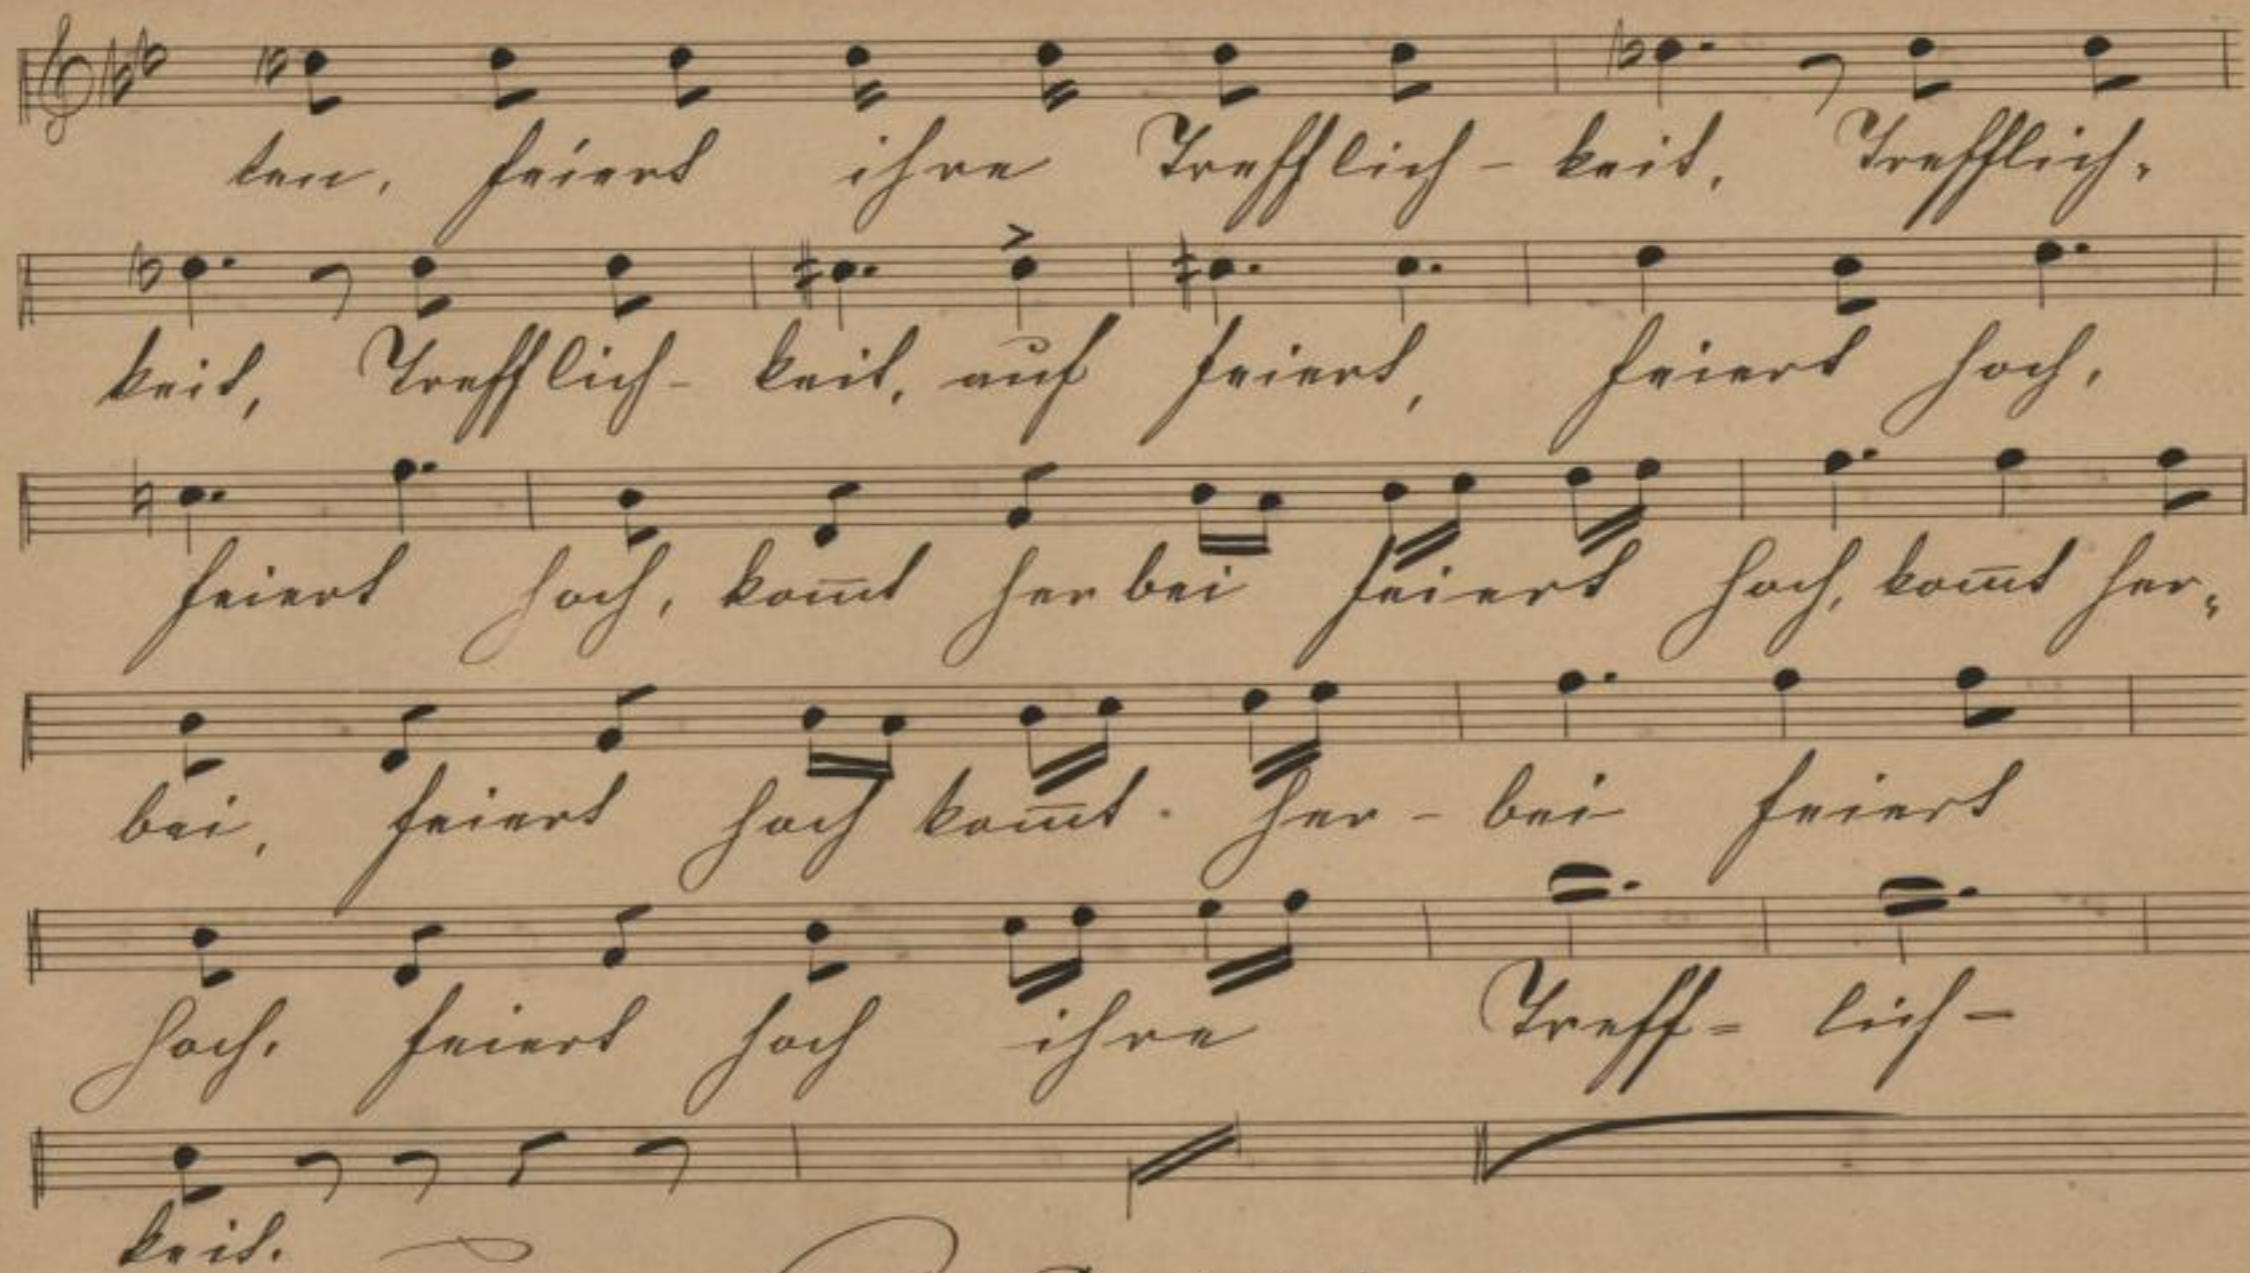 ten, feiert ihre Trefflich- keit, Trefflich-
keit, Trefflich- keit, auf feiert, feiert hoch,
feiert hoch, kom̄t herbei feiert hoch, kom̄t her-
bei, feiert hoch kom̄t her- bei feiert
hoch, feiert hoch ihre Treff= lich-
keit.